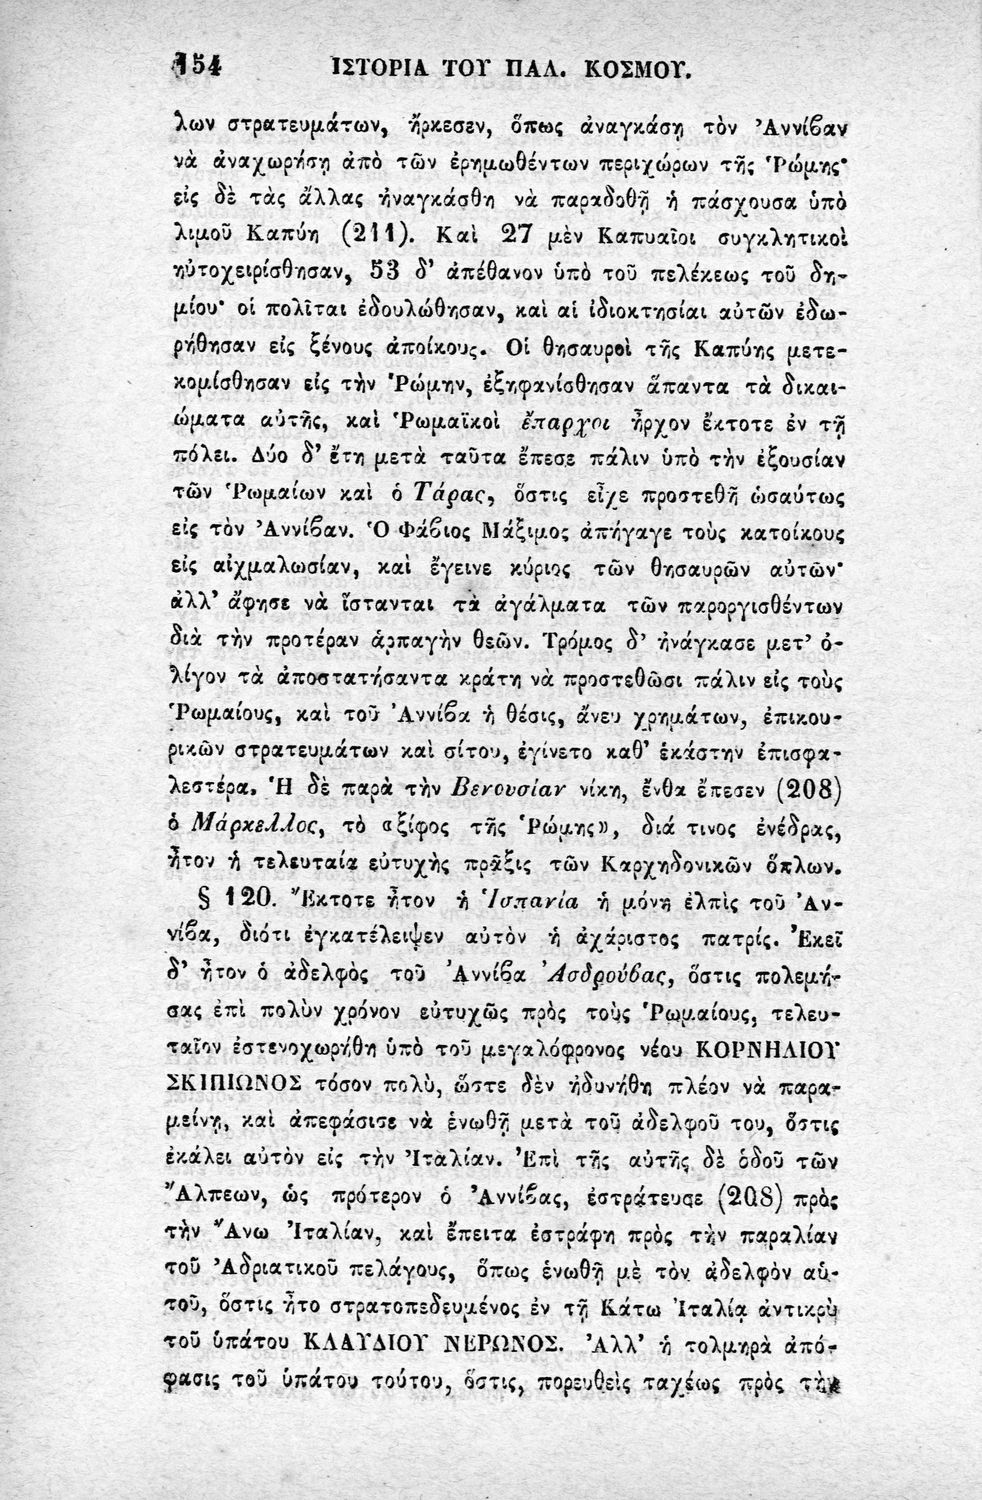 154 ΙΣΤΟΡΙΑ ΤΟΥ ΠΑΛ. ΚΟΣΜΟΥ.
λων στρατευμάτων, ἤρκεσεν, ὅπως ἀναγκάσῃ τὸν Ἀννίβαν
νὰ ἀναχωρήσῃ ἀπὸ τῶν ἐρημωθέντων περιχώρων τῆς Ῥώμης·
εἰς δὲ τὰς ἄλλας ἠναγκάσθη νὰ παραδοθῇ ἡ πάσχουσα ὑπὸ
λιμοῦ Καπύη (211). Καὶ 27 μὲν Καπυαῖοι συγκλητικοὶ
ηὐτοχειρίσθησαν, 53 δ’ ἀπέθανον ὑπὸ τοῦ πελέκεως τοῦ δη-
μίου· οἱ πολῖται ἐδουλώθησαν, καὶ αἱ ἰδιοκτησίαι αὐτῶν ἐδω-
ρήθησαν εἰς ξένους ἀποίκους. Οἱ θησαυροὶ τῆς Καπύης μετε-
κομίσθησαν εἰς τὴν Ῥώμην, ἐξηφανίσθησαν ἅπαντα τὰ δικαι-
ώματα αὐτῆς, καὶ Ῥωμαϊκοὶ ἔπαρχοι ἦρχον ἔκτοτε ἐν τῇ
πόλει. Δύο δ’ ἔτη μετὰ ταῦτα ἔπεσε πάλιν ὑπὸ τὴν ἐξουσίαν
τῶν Ῥωμαίων καὶ ὁ Τάρας, ὅστις εἶχε προστεθῆ ὡσαύτως
εἰς τὸν Ἀννίβαν. Ὁ Φάβιος Μάξιμος ἀπήγαγε τοὺς κατοίκους
εἰς αἰχμαλωσίαν, καὶ ἔγεινε κύριος τῶν θησαυρῶν αὐτῶν·
ἀλλ’ ἄφησε νὰ ἵστανται τὰ ἀγάλματα τῶν παροργισθέντων
διὰ τὴν προτέραν ἁρπαγὴν θεῶν. Τρόμος δ’ ἠνάγκασε μετ’ ὀ-
λίγον τὰ ἀποστατήσαντα κράτη νὰ προστεθῶσι πάλιν εἰς τοὺς
Ῥωμαίους, καὶ τοῦ Ἀννίβα ἡ θέσις, ἄνευ χρημάτων, ἐπικου-
ρικῶν στρατευμάτων καὶ σίτου, ἐγίνετο καθ’ ἑκάστην ἐπισφα-
λεστέρα. Ἡ δὲ παρὰ τὴν Βενουσίαν νίκη, ἔνθα ἔπεσεν (208)
ὁ Μάρκελλος, τὸ «ξίφος τῆς Ῥώμης», διά τινος ἐνέδρας,
ἦτον ἡ τελευταία εὐτυχὴς πρᾶξις τῶν Καρχηδονικῶν ὅπλων.
§ 120. Ἔκτοτε ἦτον ἡ Ἱσπανία ἡ μόνη ἐλπὶς τοῦ Ἀν-
νίβα, διότι ἐγκατέλειψεν αὐτὸν ἡ ἀχάριστος πατρίς. Ἐκεῖ
δ’ ἦτον ὁ ἀδελφὸς τοῦ Ἀννίβα Ἀσδρούβας, ὅστις πολεμή-
σας ἐπὶ πολὺν χρόνον εὐτυχῶς πρὸς τοὺς Ῥωμαίους, τελευ-
ταῖον ἐστενοχωρήθη ὑπὸ τοῦ μεγαλόφρονος νέου ΚΟΡΝΗΛΙΟΥ
ΣΚΙΠΙΩΝΟΣ τόσον πολὺ, ὥστε δὲν ἠδυνήθη πλέον νὰ παρα-
μείνῃ, καὶ ἀπεφάσισε νὰ ἑνωθῇ μετὰ τοῦ ἀδελφοῦ του, ὅστις
ἐκάλει αὐτὸν εἰς τὴν Ἰταλίαν. Ἐπὶ τῆς αὐτῆς δὲ ὁδοῦ τῶν
Ἄλπεων, ὡς πρότερον ὁ Ἀννίβας, ἐστράτευσε (208) πρὸς
τὴν Ἄνω Ἰταλίαν, καὶ ἔπειτα ἐστράφη πρὸς τὴν παραλίαν
τοῦ Ἀδριατικοῦ πελάγους, ὅπως ἑνωθῇ μὲ τὸν ἀδελφὸν αὑ-
τοῦ, ὅστις ἦτο στρατοπεδευμένος ἐν τῇ Κάτω Ἰταλίᾳ ἀντικρὺ
τοῦ ὑπάτου ΚΛΑΥΔΙΟΥ ΝΕΡΩΝΟΣ. Ἀλλ’ ἡ τολμηρὰ ἀπό-
φασις τοῦ ὑπάτου τούτου, ὅστις, πορευθεὶς ταχέως πρὸς τὴν